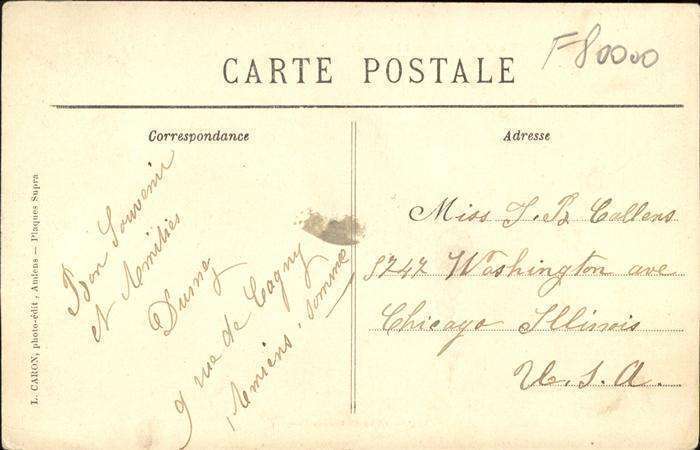 CARTE POSTALE
F80000
Correspondance
Adresse
Bon Souvenir
et Amitiés
Dumez
9 rue de Cagny
Amiens, Somme
Miss J. B. Callens
5747 Washington ave
Chicago Illinois
U.S.A.
L. CARON, photo-édit, Amiens — Plaques Supra